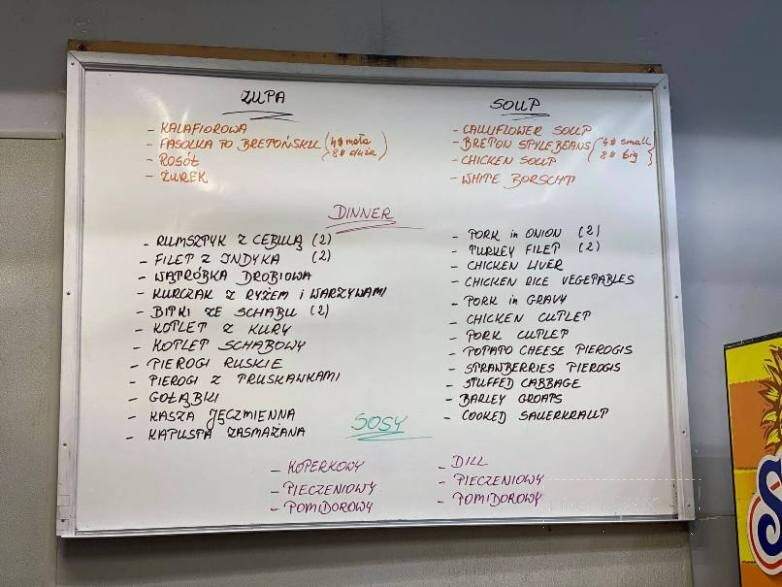 ZUPA
- KALAFIOROWA
- FASOLKA PO BRETOŃSKU (4$ mała
8$ duża)
- ROSÓŁ
- ŻUREK
SOUP
- CAULIFLOWER SOUP
- BRETON STYLE BEANS (4$ small
8$ big)
- CHICKEN SOUP
- WHITE BORSCHT
DINNER
- RUMSZTYK Z CEBULĄ (2)
- FILET Z INDYKA (2)
- WĄTRÓBKA DROBIOWA
- KURCZAK Z RYŻEM i WARZYWAMI
- BITKI ZE SCHABU (2)
- KOTLET Z KURY
- KOTLET SCHABOWY
- PIEROGI RUSKIE
- PIEROGI Z TRUSKAWKAMI
- GOŁĄBKI
- KASZA JĘCZMIENNA
- KAPUSTA ZASMAŻANA
- PORK in ONION (2)
- TURKEY FILET (2)
- CHICKEN LIVER
- CHICKEN RICE VEGETABLES
- PORK in GRAVY
- CHICKEN CUTLET
- PORK CUTLET
- POTATO CHEESE PIEROGIS
- STRAWBERRIES PIEROGIS
- STUFFED CABBAGE
- BARLEY GROATS
- COOKED SAUERKRAUT
SOSY
- KOPERKOWY
- PIECZENIOWY
- POMIDOROWY
- DILL
- PIECZENIOWY
- POMIDOROWY